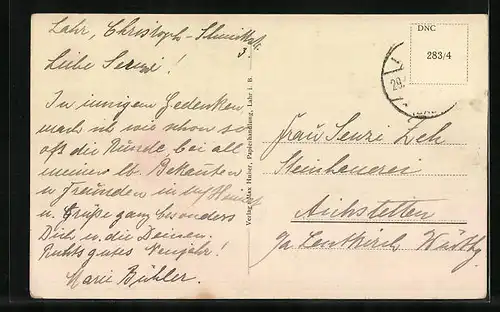 Lahr, Christoph-Schmittstr.
3.
Liebe Senze!
In innigem Gedenken
mach ich wie schon so
oft die Runde bei all
meinen lb. Bekannten
u. Freunden in
u. Grüße ganz besonders
Dich u. die Deinen.
Rechts gutes Neujahr!
Marie Bühler.
Verlag Max Huser, Papierhandlung, Lahr i. B.
DNC
283/4
29.
Frau Senze Zeh
Steinhauerei
Aichstetten
Leutkirch Württbg.